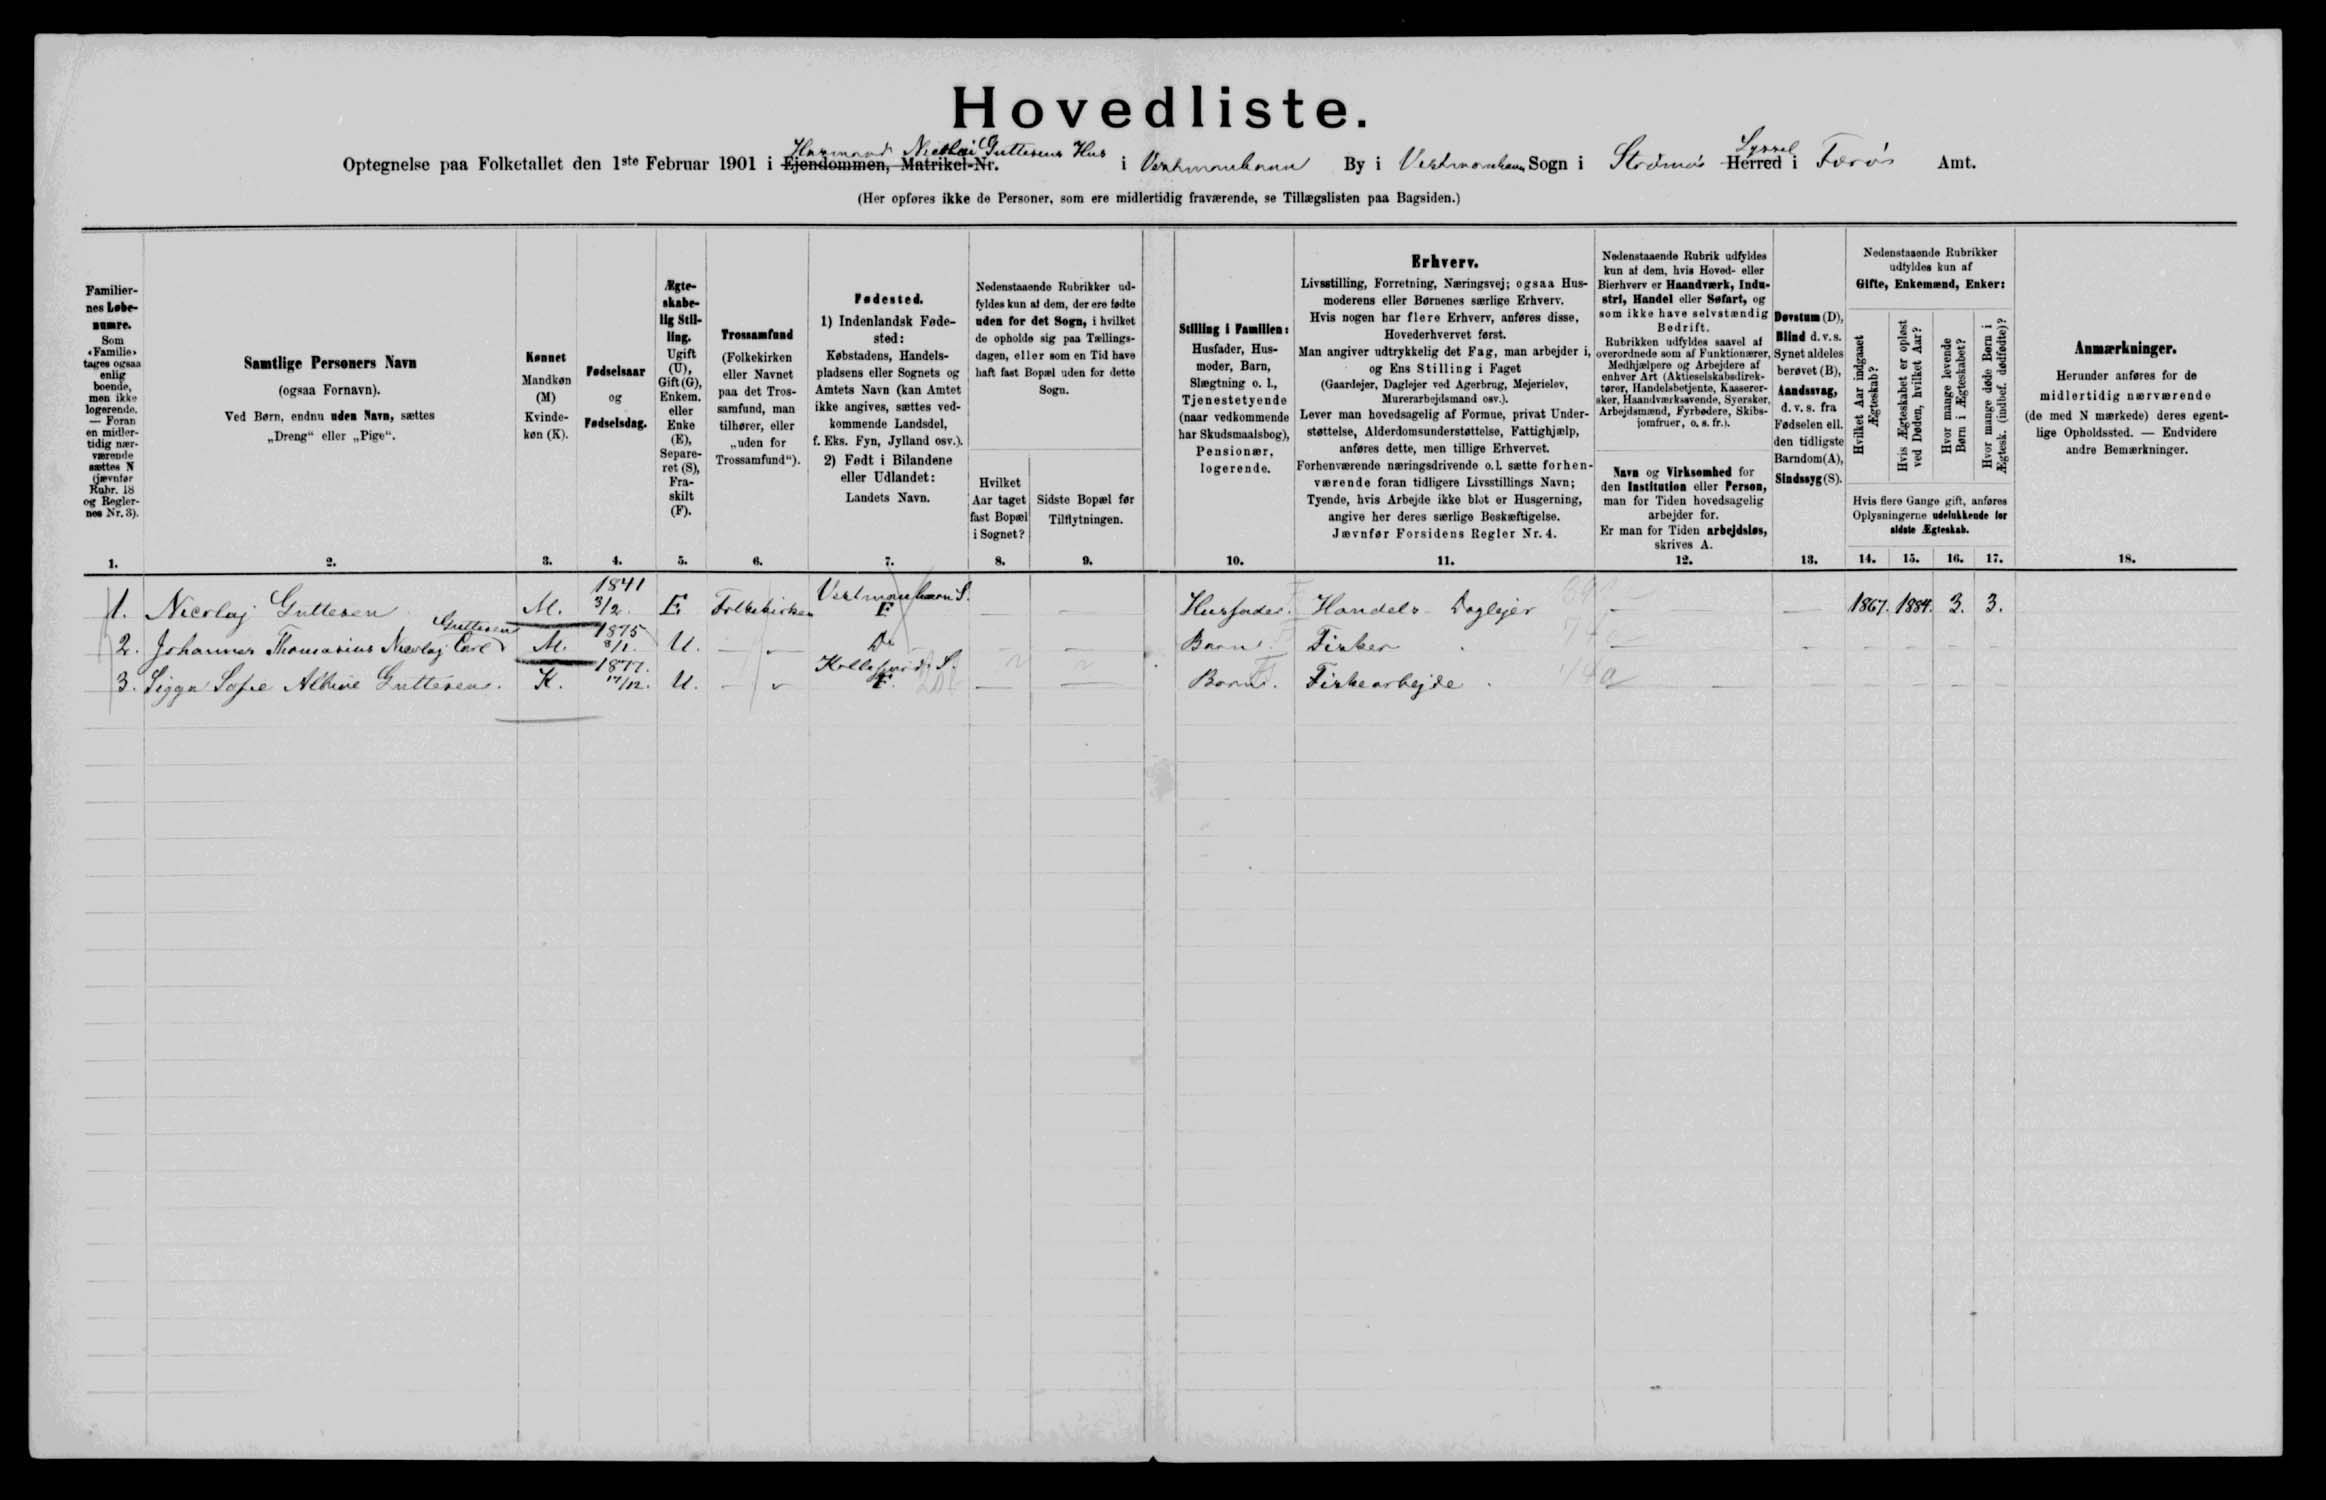 Hovedliste.
Optegnelse paa Folketallet den 1ste Februar 1901 i Ejendommen, Matrikel-Nr. Husmand Nicolai Guttesens Hus i Vestmanhavn By i Vestmanhavn Sogn i Strömö Herred Syssel i Færö Amt.
(Her opføres ikke de Personer, som ere midlertidig fraværende, se Tillægslisten paa Bagsiden.)
Familier-
nes Løbe-
numre.
Som
«Familie»
tages ogsaa
enlig
boende,
men ikke
logerende.
— Foran
en midler-
tidig nær-
værende
sættes N
(jævnfør
Rubr. 18
og Regler-
nes Nr. 3).
1.
Samtlige Personers Navn
(ogsaa Fornavn).
Ved Børn, endnu uden Navn, sættes
„Dreng“ eller „Pige“.
2.
Kønnet
Mandkøn
(M)
Kvinde-
køn (K).
3.
Fødselsaar
og
Fødselsdag.
4.
Ægte-
skabe-
lig Stil-
ling.
Ugift
(U),
Gift (G),
Enkem.
eller
Enke
(E),
Separe-
ret (S),
Fra-
skilt
(F).
5.
Trossamfund
(Folkekirken
eller Navnet
paa det Tros-
samfund, man
tilhører, eller
„uden for
Trossamfund“).
6.
Fødested.
1) Indenlandsk Føde-
sted:
Købstadens, Handels-
pladsens eller Sognets og
Amtets Navn (kan Amtet
ikke angives, sættes ved-
kommende Landsdel,
f. Eks. Fyn, Jylland osv.).
2) Født i Bilandene
eller Udlandet:
Landets Navn.
7.
Nedenstaaende Rubrikker ud-
fyldes kun af dem, der ere fødte
uden for det Sogn, i hvilket
de opholde sig paa Tællings-
dagen, eller som en Tid have
haft fast Bopæl uden for dette
Sogn.
Hvilket
Aar taget
fast Bopæl
i Sognet?
8.
Sidste Bopæl før
Tilflytningen.
9.
Stilling i Familien:
Husfader, Hus-
moder, Barn,
Slægtning o. l.,
Tjenestetyende
(naar vedkommende
har Skudsmaalsbog),
Pensionær,
logerende.
10.
Erhverv.
Livsstilling, Forretning, Næringsvej; ogsaa Hus-
moderens eller Børnenes særlige Erhverv.
Hvis nogen har flere Erhverv, anføres disse,
Hovederhvervet først.
Man angiver udtrykkelig det Fag, man arbejder i,
og Ens Stilling i Faget
(Gaardejer, Daglejer ved Agerbrug, Mejerielev,
Murerarbejdsmand osv.).
Lever man hovedsagelig af Formue, privat Under-
støttelse, Alderdomsunderstøttelse, Fattighjælp,
anføres dette, men tillige Erhvervet.
Forhenværende næringsdrivende o.l. sætte forhen-
værende foran tidligere Livsstillings Navn;
Tyende, hvis Arbejde ikke blot er Husgerning,
angive her deres særlige Beskæftigelse.
Jævnfør Forsidens Regler Nr. 4.
11.
Nedenstaaende Rubrik udfyldes
kun af dem, hvis Hoved- eller
Bierhverv er Haandværk, Indu-
stri, Handel eller Søfart, og
som ikke have selvstændig
Bedrift.
Rubrikken udfyldes saavel af
overordnede som af Funktionærer,
Medhjælpere og Arbejdere af
enhver Art (Aktieselskabsdirek-
tører, Handelsbetjente, Kasserer-
sker, Haandværkssvende, Syersker,
Arbejdsmænd, Fyrbødere, Skibs-
jomfruer, o. s. fr.).
Navn og Virksomhed for
den Institution eller Person,
man for Tiden hovedsagelig
arbejder for.
Er man for Tiden arbejdsløs,
skrives A.
12.
Døvstum (D),
Blind d. v. s.
Synet aldeles
berøvet (B),
Aandssvag,
d. v. s. fra
Fødselen ell.
den tidligste
Barndom (A),
Sindssyg (S).
13.
Nedenstaaende Rubrikker
udfyldes kun af
Gifte, Enkemænd, Enker:
Hvilket Aar indgaaet
Ægteskab?
Hvis Ægteskabet er opløst
ved Døden, hvilket Aar?
Hvor mange levende
Børn i Ægteskabet?
Hvor mange døde Børn i
Ægtesk. (indbef. dødfødte)?
Hvis flere Gange gift, anføres
Oplysningerne udelukkende for
sidste Ægteskab.
14. 15. 16. 17.
Anmærkninger.
Herunder anføres for de
midlertidig nærværende
(de med N mærkede) deres egent-
lige Opholdssted. — Endvidere
andre Bemærkninger.
18.
1. Nicolaj Guttesen M. 1841 3/2. E Folkekirken Vestmanhavn S. F — — Husfader. Handels-Daglejer — — 1867. 1884. 3. 3.
2. Johannes Thomasius Nicolaj Carl Guttesen M. 1875 8/1. U. — " — Do — — Barn. Fisker — - - - - -
3. Sigga Sofie Albine Guttesen. K. 1877. 17/12. U. — " Kollefjords S. F. — — Barn. Fiskearbejde — — - - - -